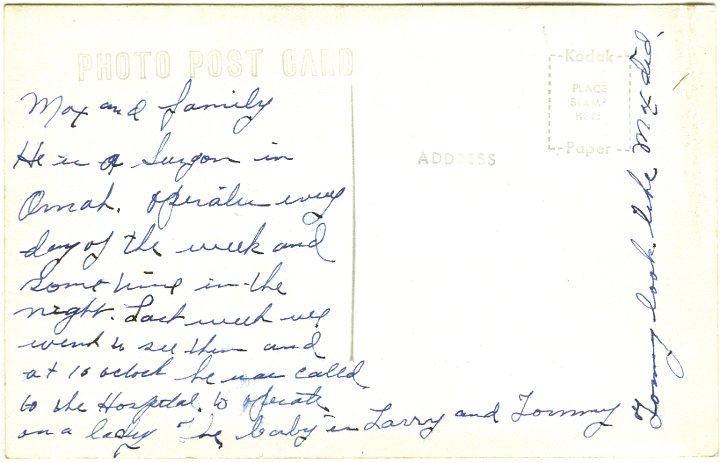 PHOTO POST CARD
Max and family
He is a Surgon in
Omah. operates every
day of the week and
some time in the
night. Last week we
went to see them and
at 10 oclock he was called
to the Hospital. to operate
on a lady The baby is Larry and Tommy
Tommy look like Max did
ADDRESS
Kodak
PLACE
STAMP
HERE
Paper